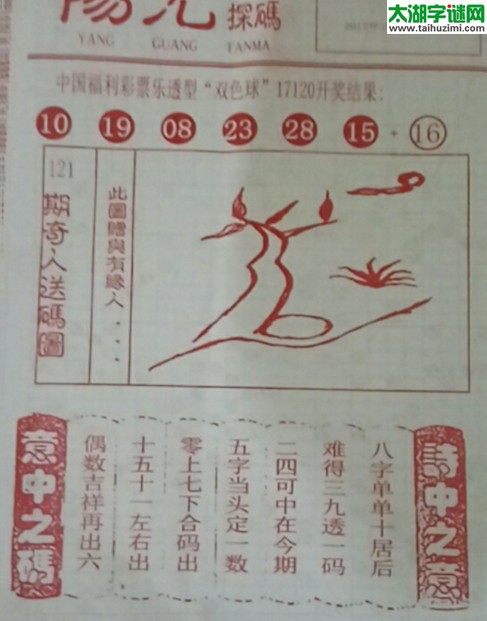 太湖字谜网
www.taihuzimi.com
陽光探碼
YANG GUANG TANMA
中国福利彩票乐透型“双色球”17120开奖结果:
10 19 08 23 28 15 + 16
121
期奇人送碼圖
此圖贈與有緣人....
詩中之意
八字单单十居后
难得三九透一码
二四可中在今期
五字当头定一数
零上七下合码出
十五十一左右出
偶数吉祥再出六
意中之碼